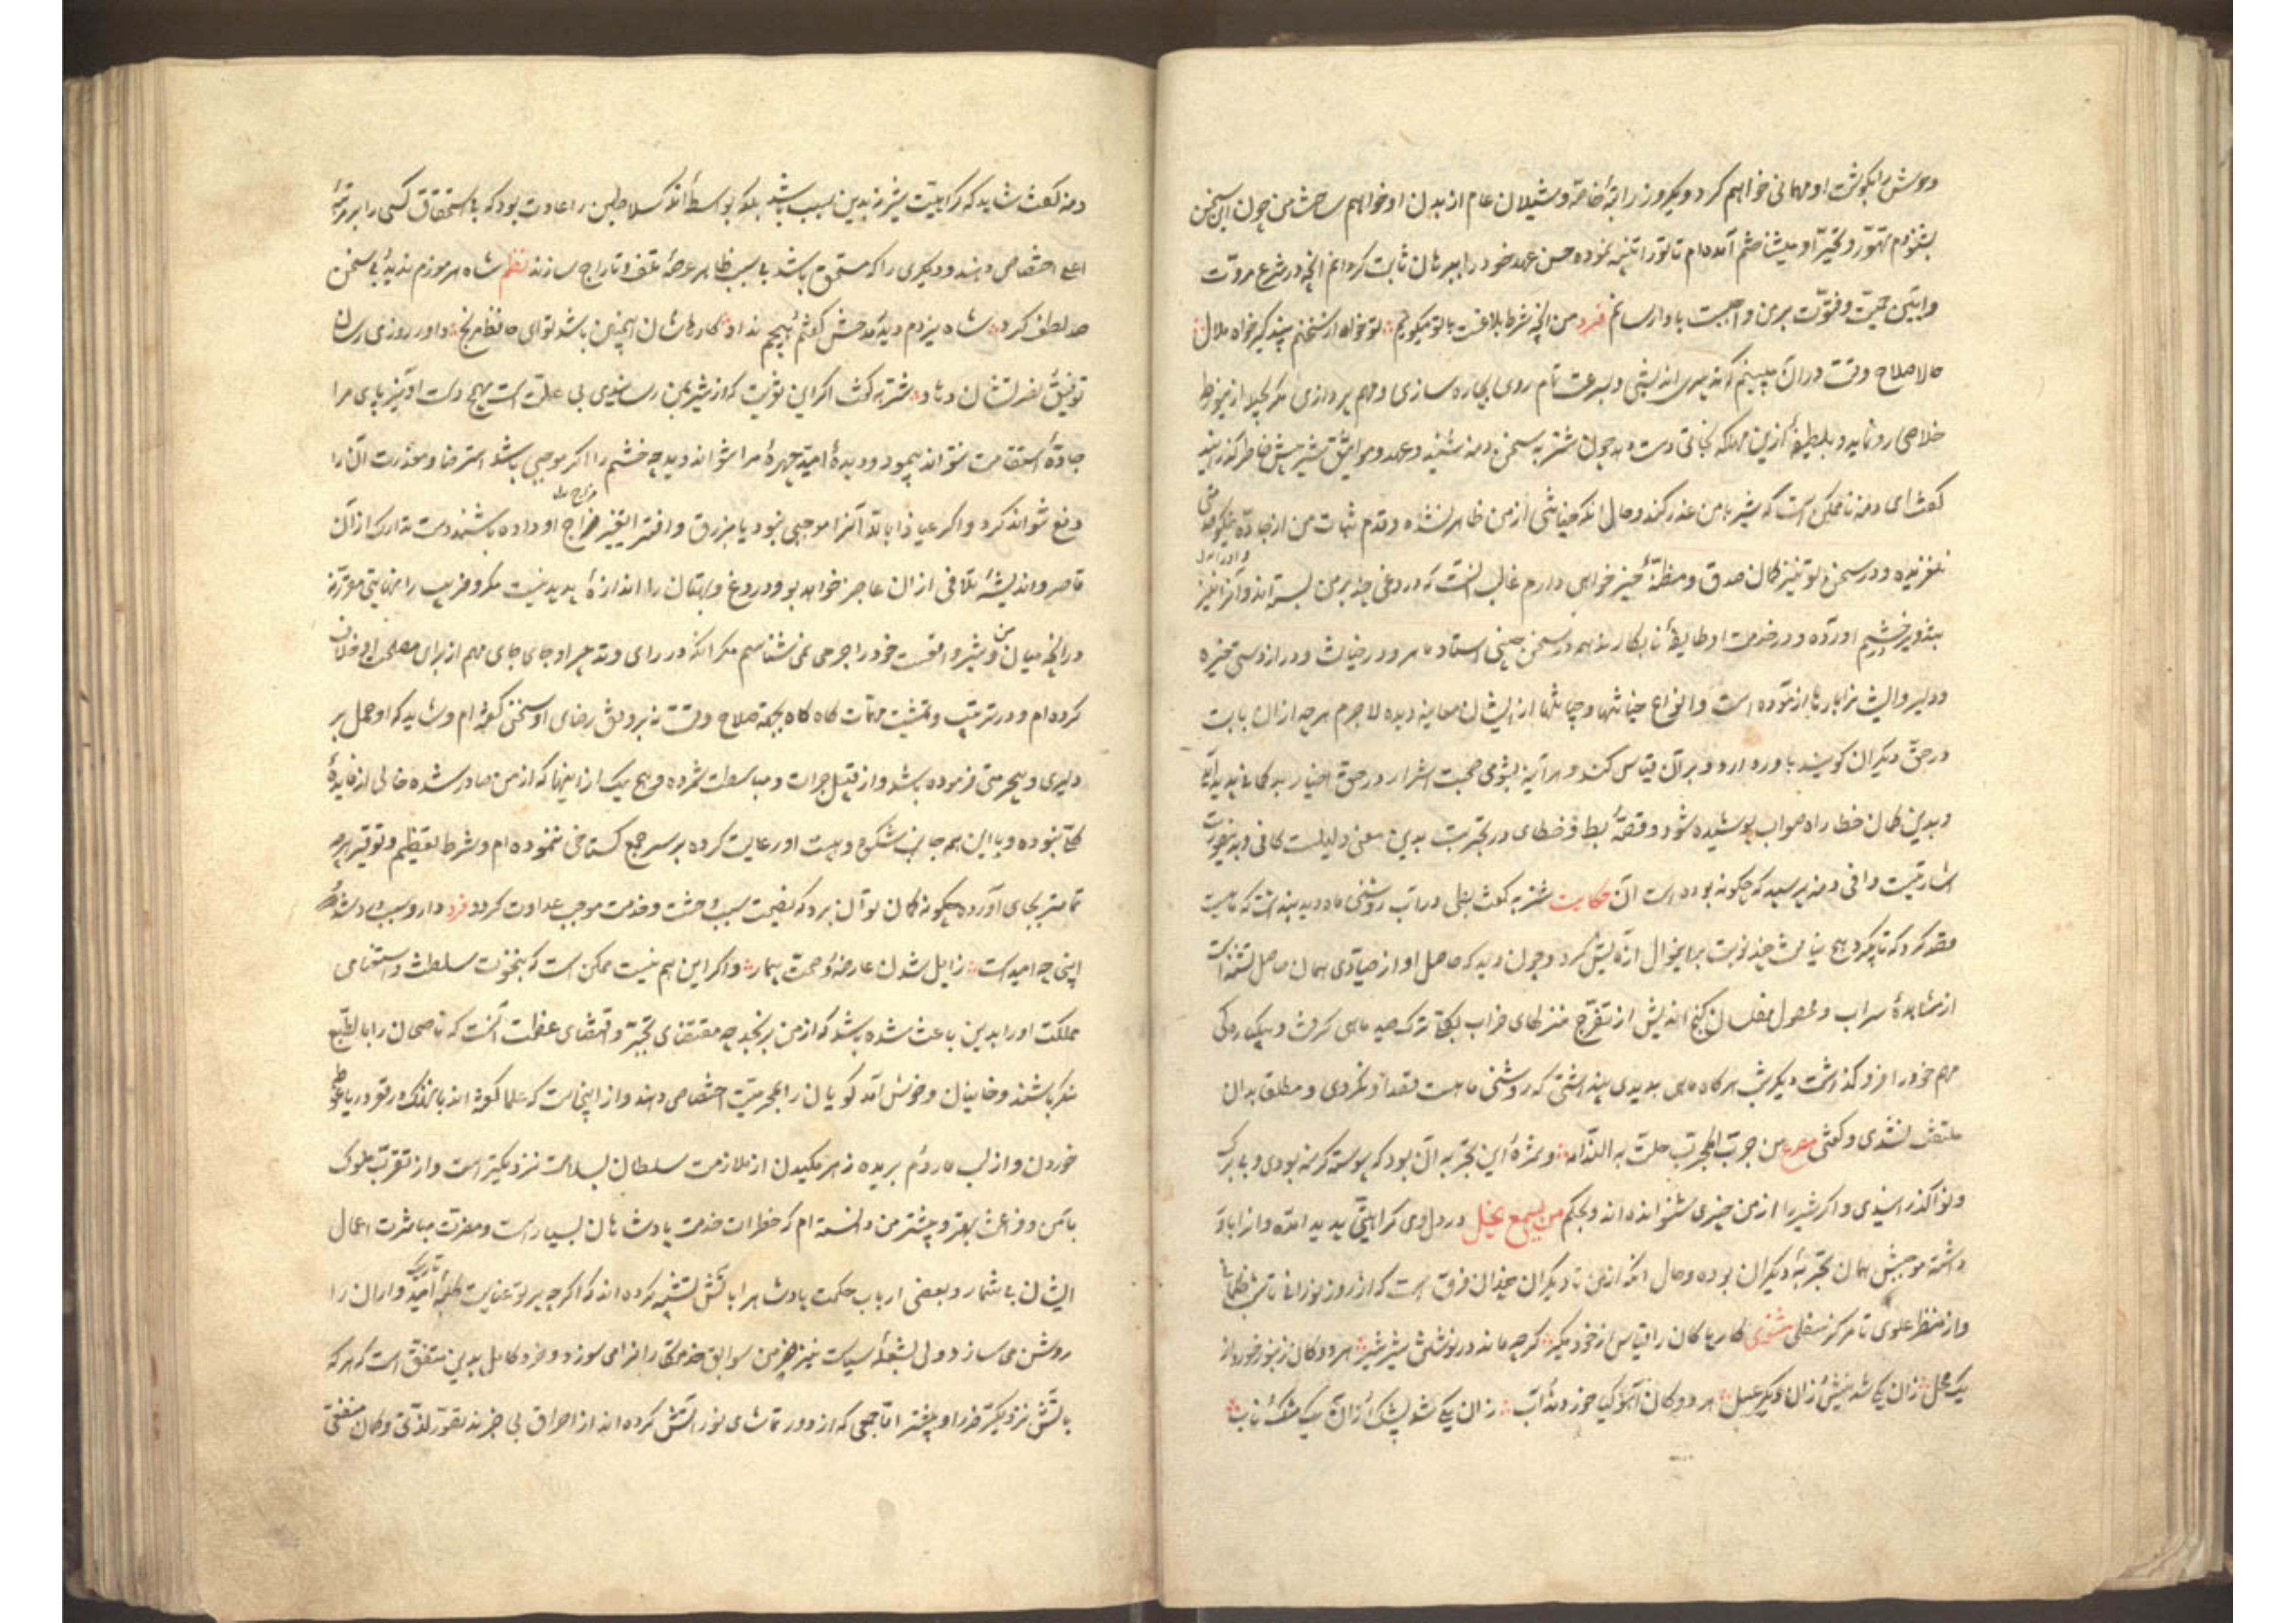 وحوش را بگوشت او مهمانی خواهم کرد و یکروز راتبهٔ خاصه و شیلان عام از بدن او خواهم ساخت من چون این سخن
بشنودم و تهور و تجبر او میشناختم آمده‌ام تا ترا تنبیه نموده حسن عهد خود را ببرهان ثابت گردانم آنچه در شرع مروت
و آیین حمیت و فتوت بر من واجبست بادا رسانم فرد من آنچه شرط بلاغست با تو میگویم تو خواه از سخنم پند گیر خواه ملال
حالا صلاح وقت در آن میبینم که تدبیری اندیشی و بسرعت تمام روی بچاره سازی و مهم پردازی مگر بحیله ازین ورطه
خلاصی رو نماید و بلطیفهٔ ازین مهلکه نجاتی دست دهد چون شنزبه سخن دمنه شنید و عهد و مواثیق شیر پیش خاطر گذرانید
گفت ای دمنه ناممکن است که شیر با من غدر کند و حال آنکه خیانتی از من ظاهر نشده و قدم ثبات من از جادهٔ نیکو خدمتی
نلغزیده و در سخن تو نیز گمان صدق و مظنهٔ خیر خواهی دارم غالب آنست که دروغی چند بر من بسته‌اند و او را نیز
بتزویر در خشم آورده و در خدمت او طایفهٔ نابکارند همه در سخن چینی استاد ماهر و در خیانت و دراز دستی خیره
و دلیر و ایشانرا بارها آزموده است و انواع خیانتها و جنایتها از ایشان معاینه دیده لاجرم هر چه از آن بابت
در حق دیگران گویند باور دارد و بر آن قیاس کند و هر آینه بشومی صحبت اشرار در حق اخیار بدگمانی پدید آید
و بدین گمان خطا راه صواب پوشیده شود و قصهٔ بط و خطای در تجربت بدین معنی دلیلست کافی و بدینصورت
اشارتیست وافی دمنه پرسید که چگونه بوده است آن حکایت شنزبه گفت بطی در آب روشنی ماه دید پنداشت که ماهیست
قصد کرد که تا بگیرد هیچ نیافت چند نوبت برینمنوال آزمایش کرد و چون دید که حاصل او از صیادی همان حاصل تشنه است
از مشاهدهٔ سراب و محصول مفلسان گنج اندیش از تفرج منزلهای خراب بکلی ترک صید ماهی گرفت و بیکبارگی
مهم خود را فرو گذاشت دیگر شب هرگاه ماهی بدیدی پنداشتی که روشنی ماهست قصد او نکردی و مطلقا بدان
ملتفت نشدی و گفتی مصرع من جرب المجرب حلت به الندامه و ثمرهٔ این تجربه آن بود که پیوسته گرسنه بودی و بی برگ
و نوا گذرانیدی و اگر شیر را از من چیزی شنوانده‌اند و بحکم من یسمع یخل در دل وی کراهیتی پدید آمده و آنرا باور
داشته موجبش همان تجربهٔ دیگران بوده و حال آنکه از من تا دیگران چندان فرق است که از روز نورانی تا شب ظلمانی
و از منظر علوی تا مرکز سفلی مثنوی کار پاکان را قیاس از خود مگیر گر چه ماند در نوشتن شیر شیر هر دو گان زنبور خوردند از
یک محل زان یکی شد نیش و زان دیگر عسل هر دو گان آهو گیا خوردند و آب زان یکی شد پشک و زان یک مشک ناب
دمنه گفت شاید که کراهیت شیر نه بدین سبب باشد بلکه بواسطهٔ آنکه سلاطین را عادت بود که بی استحقاق کسی را بمرتبهٔ
اعلی اختصاص دهند و دیگری را که مستحق باشد بی سبب ظاهر عرضهٔ تلف و تاراج سازند نظم شاه هرموزم ندید و بی سخن
صد لطف کرد شاه یزدم دید و مدحش گفتم و هیچم نداد کار شاهان اینچنین باشد تو ای حافظ مرنج داور روزی رسان
توفیق نصرتشان دهاد شنزبه گفت اگر این نوبت که از شیر بمن رسانیدی بی علت است بهیچ دست آویز پای مرا
جادهٔ استقامت نتواند پیمود و دیدهٔ امید چهرهٔ مراد نتواند دید چه خشم را اگر موجبی باشد استرضا و معذرت آن را
دفع تواند کرد و اگر عیاذا بالله آنرا موجبی نبود یا بزرق و افترا تغییر مزاج او داده باشند دست تدارک از آن
قاصر و اندیشهٔ تلافی از آن عاجز خواهد بود و دروغ و بهتان را اندازهٔ پدید نیست مکر و فریب را نهایتی مقرر نه
در آنچه میان من و شیر واقعست خود را جرمی نمی شناسم مگر آنکه در رای و تدبیر او جای جای مهم از برای مصلحت او خلاف
کرده‌ام و در ترتیب و تمشیت مهمات گاه گاه بجهة صلاح وقت نه بر وفق رضای او سخنی گفته‌ام و شاید که او حمل بر
دلیری و بیحرمتی فرموده باشد و از قبیل جرات و مباسطت شمرده و هیچ یک ازینها که از من صادر شده خالی از فایدهٔ
کلی نبوده و با این همه جانب شکوه و هیبت او رعایت کرده بر سر جمع گستاخی ننموده‌ام و شرط تعظیم و توقیر هر چه
تمامتر بجای آورده چگونه گمان توان برد که نصیحت سبب وحشت و خدمت موجب عداوت گردد فرد دارو سبب درد شد
اینجا چه امیدست زایل شدن عارضه و صحت بیمار و اگر این هم نیست ممکن است که نخوت سلطنت و استغنای
مملکت او را بدین باعث شده باشد که از من برنجد چه مقتضای تجبر و قتضای عظمت آنست که ناصحان را بالطبع
منکر باشند و خاینان و خوش آمد گویان را بمحرمیت اختصاص دهند و از اینجاست که علما گفته‌اند با نهنگ در قعر دریا غوطه
خوردن و از لب مار دم بریده زهر مکیدن از ملازمت سلطان بسلامت نزدیکتر است و از تقرب ملوک
بامن و فراغت بهتر و پیشتر من دانسته‌ام که خطرات خدمت پادشاهان بسیار است و مضرت مباشرت اعمال
ایشان بی شمار و بعضی ارباب حکمت پادشاه را بآتش تشبیه کرده‌اند که اگر چه پرتو عنایت کلبهٔ تاریک امیدواران را
روشن می سازد ولی بشعلهٔ سیاست نیز خرمن سوابق خدمتکاران را می سوزد و خرد کامل بدین متفق است که هر که
بآتش نزدیکتر ضرر او بیشتر اما جمعی که از دور تماشای نور آتش کرده‌اند از احراق بی خبرند تصور لذتی و گمان منفعتی